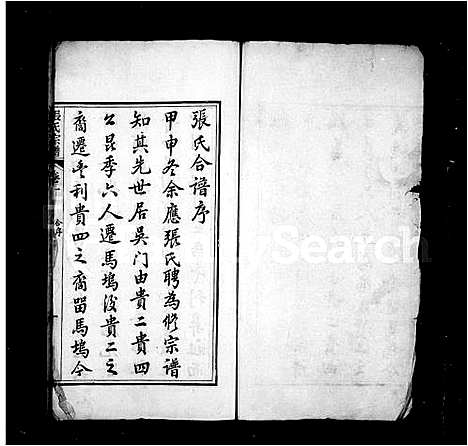 張氏合譜序
甲申冬余應張氏聘為修宗譜
知其先世居吳门由貴二貴四
公昆季六人遷馬塢後貴二之
裔遷利貴四之裔留馬塢今
張氏宗譜
Search